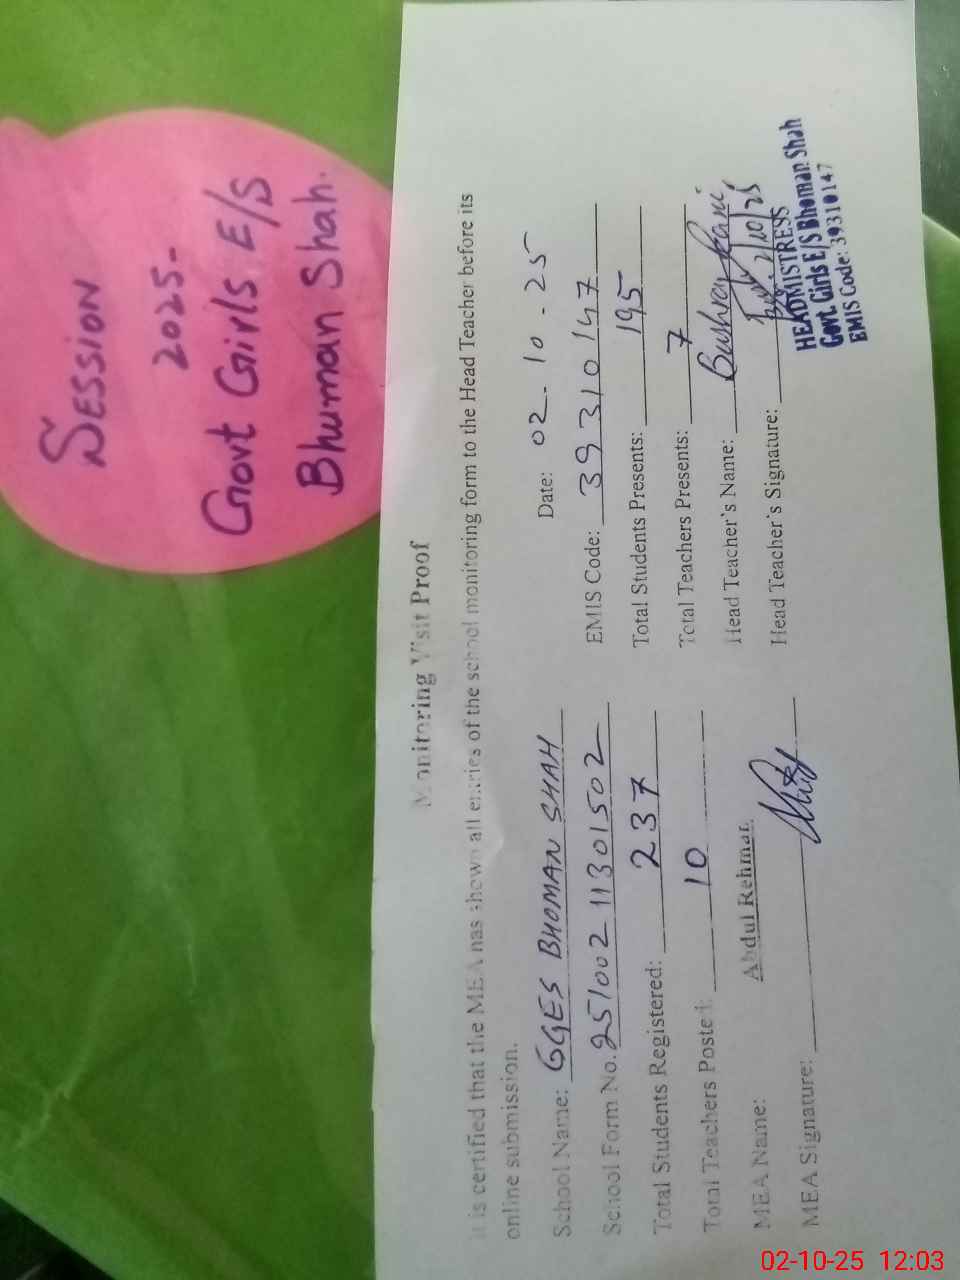 SESSION
2025-
Govt Girls E/S
Bhuman Shah.
Monitoring Visit Proof
It is certified that the MEA has shown all entries of the school monitoring form to the Head Teacher before its
online submission.
Date: 02.10.25
School Name: GGES BHOMAN SHAH
EMIS Code: 39310147
School Form No. 251002 11301502
Total Students Presents: 195
Total Students Registered: 237
Total Teachers Presents: 7
Total Teachers Posted: 10
Head Teacher's Name: Bushra Rani
MEA Name: Abdul Rehman
Head Teacher's Signature: 2/10/25
MEA Signature:
HEADMISTRESS
Govt. Girls E/S Bhoman Shah
EMIS Code: 39310147
02-10-25 12:03